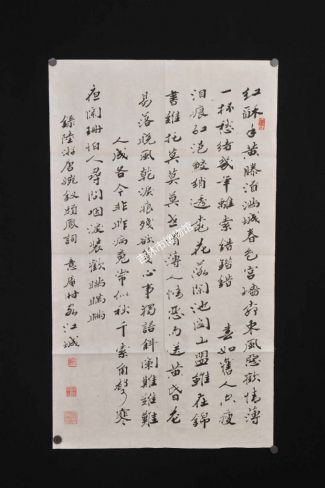 紅酥手黄縢酒滿城春色宮墻柳東風惡歡情薄
一杯愁緒幾年離索錯錯錯 春如舊人空瘦
淚痕紅浥鮫綃透桃花落閑池閣山盟雖在錦
書難托莫莫莫 世情薄人情惡雨送黄昏花
易落曉風乾淚痕殘欲箋心事獨語斜闌難難難
人成各今非昨病魂常似秋千索角聲寒
夜闌珊怕人尋問咽淚裝歡瞞瞞瞞
錄陸游唐琬釵頭鳳詞 江城
吉林市博物馆